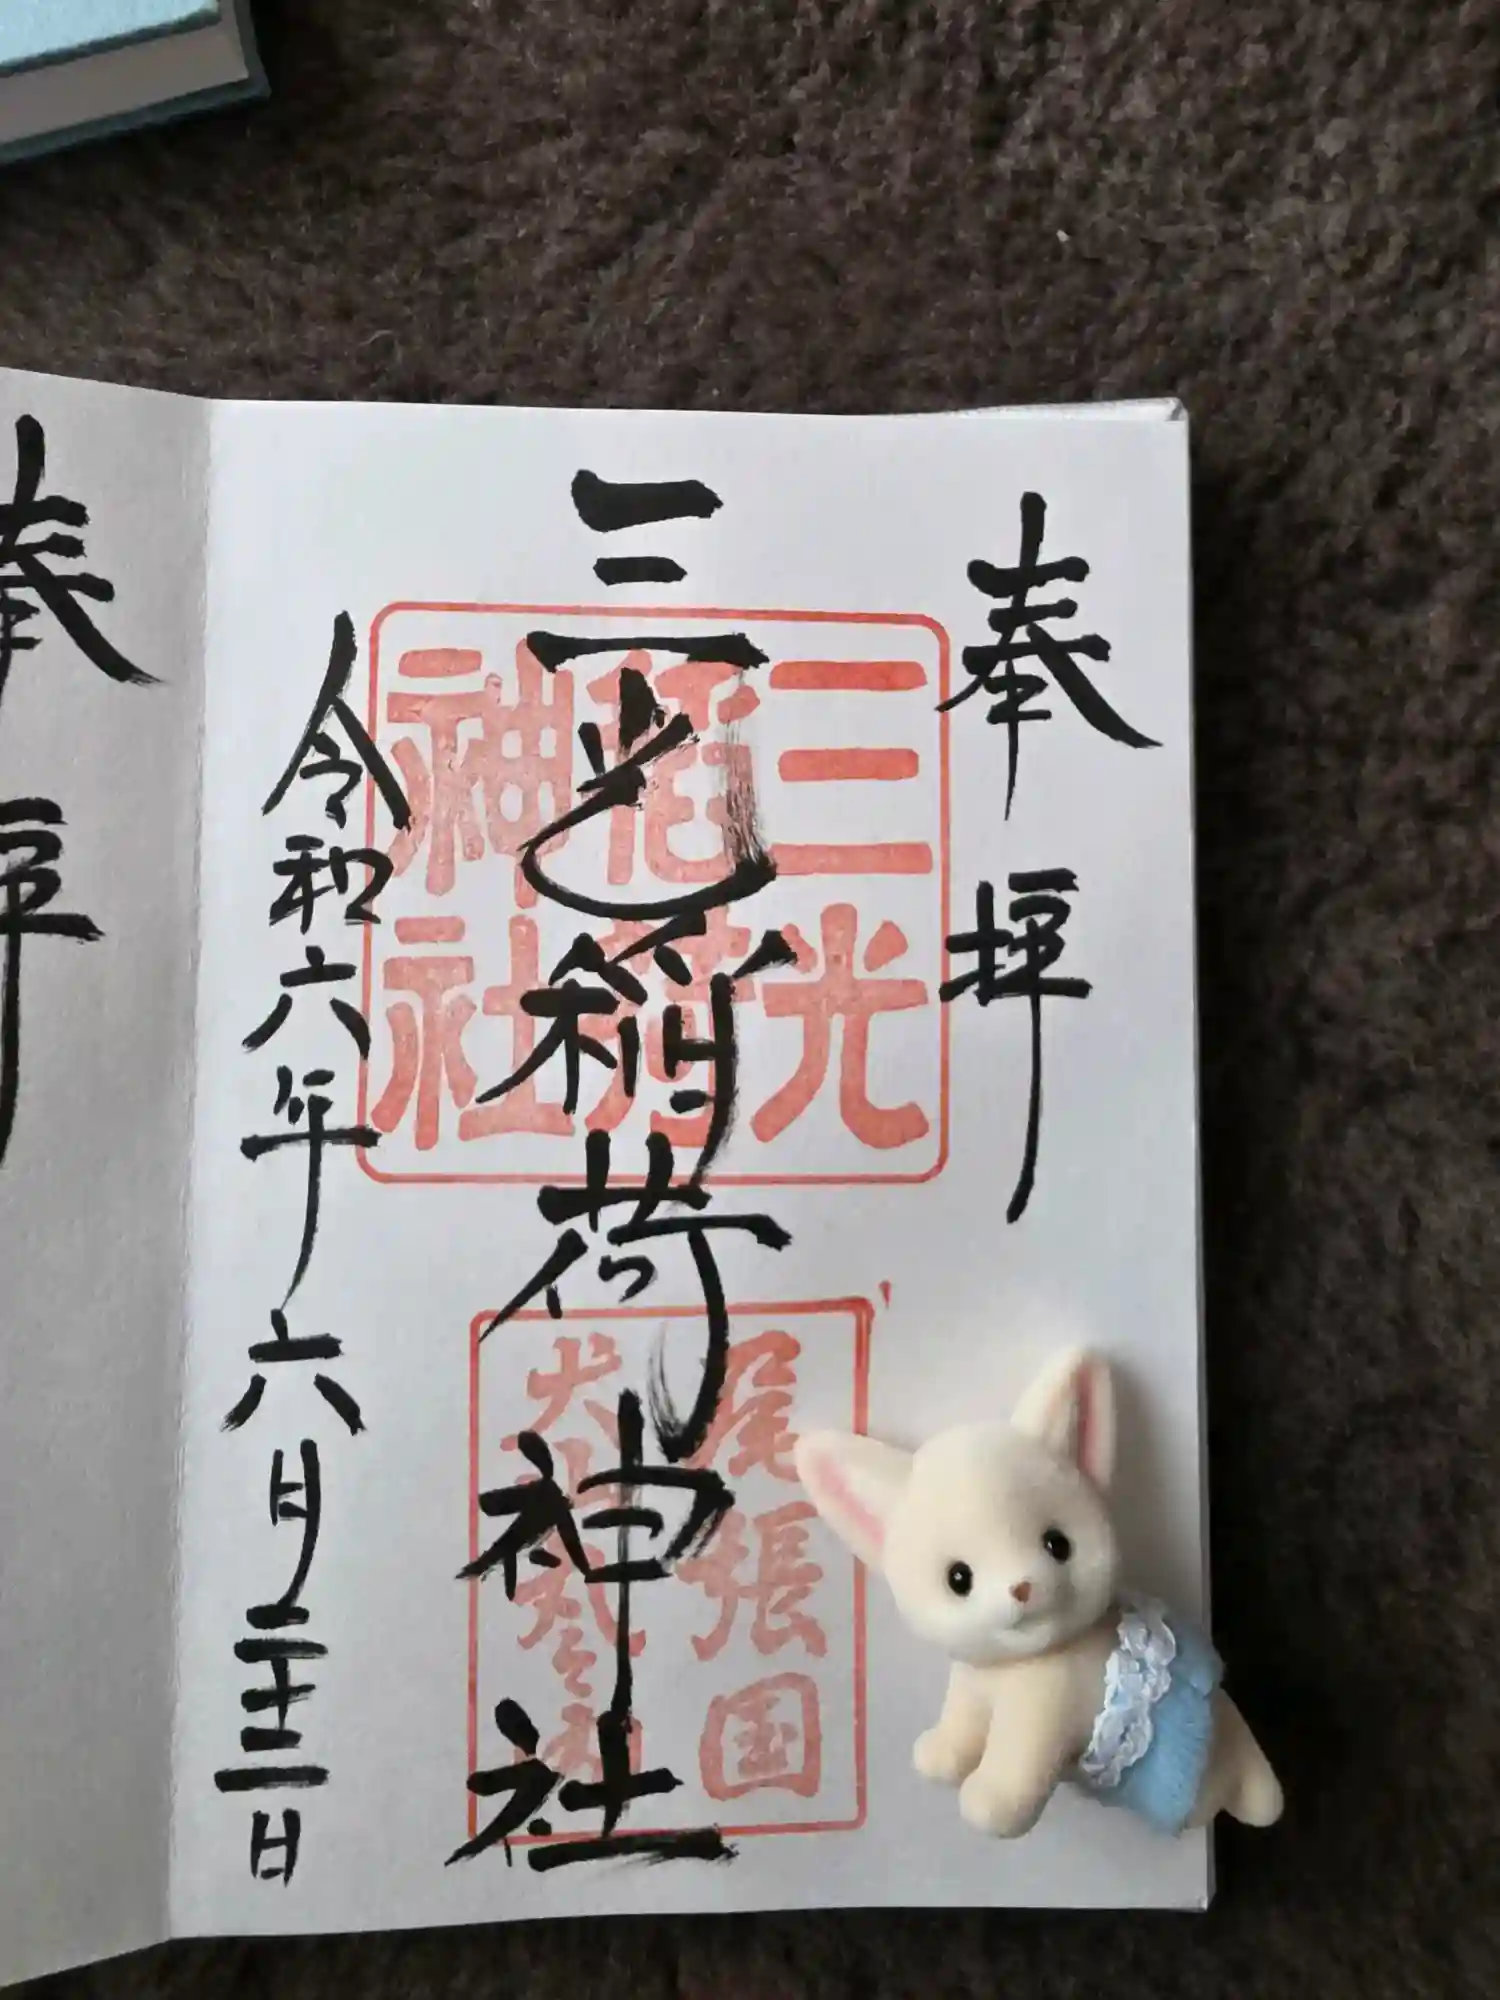 奉拝
三光稲荷神社
令和六年六月二十二日
三光
稲荷
神社
尾張国
奉拝